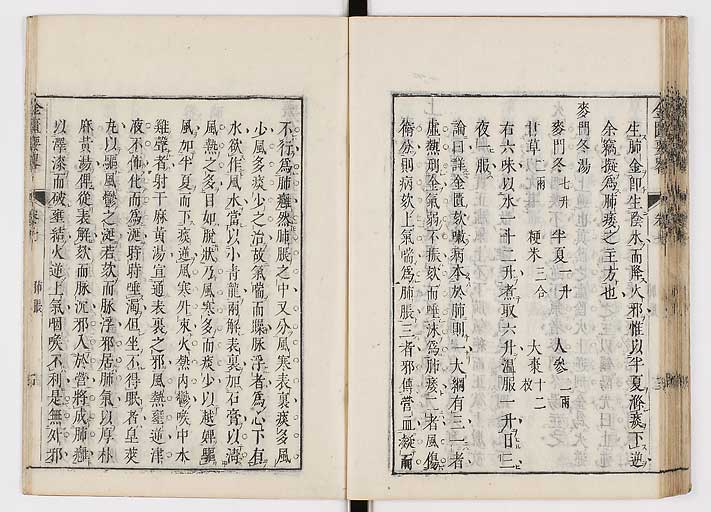 金匱要畧
生肺金即生陰水而降火邪惟以半夏滌痰下逆
余竊擬為肺痿之主方也
麥門冬湯
麥門冬七升 半夏一升 人參二兩
甘草二兩 粳米三合 大棗十二枚
右六味以水一斗二升煮取六升溫服一升日三
夜一服
論曰詳金匱欬嗽病本於肺則一大綱有三一者
虛熱刑金氣弱不振欬而唾沫為肺痿二者風傷
衛分則病欬上氣喘為肺脹三者邪傳營血凝而
不行為肺癰然肺脹之中又分風寒表裏痰多風
少風多痰少之治故氣喘而躁脉浮者為心下有
水欲作風水當以小青龍兩解表裏加石膏以清
風熱之多目如脫狀乃風寒多而痰少以越婢驅
風加半夏而下痰逆風寒外束火熱內鬱喉中水
雞聲者射干麻黃湯宣通表裏之邪風熱壅逆津
液不佈化而為涎時時唾濁但坐不得眠者皂莢
丸以驅風鬱之涎若欬而脉浮邪居肺氣以厚朴
麻黃湯俾從表解欬而脉沉邪入於營將成肺癰
以澤漆而破壅結火逆上氣咽喉不利是無外邪
金匱要畧 肺脹